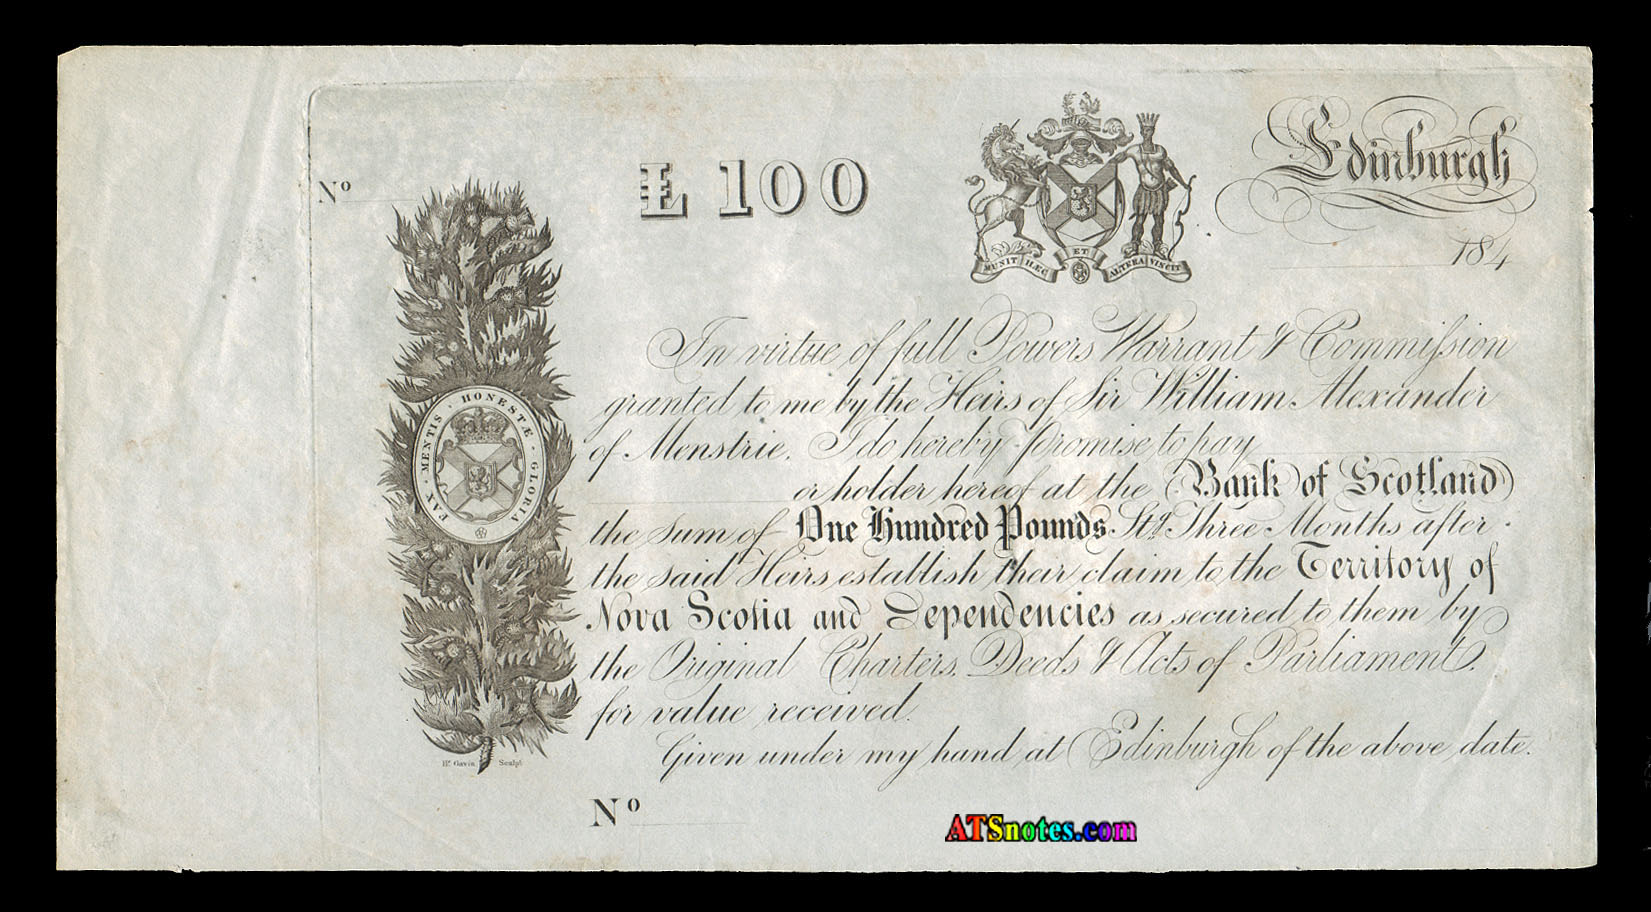 Nº
£ 100
Edinburgh
184
MUNIT HÆC ET ALTERA VINCIT
FAX · MENTIS · HONESTÆ · GLORIA
In virtue of full Powers Warrant & Commission
granted to me by the Heirs of Sir William Alexander
of Menstrie. I do hereby promise to pay
or holder hereof at the Bank of Scotland
the sum of One Hundred Pounds Stg. Three Months after
the said Heirs establish their claim to the Territory of
Nova Scotia and Dependencies as secured to them by
the Original Charters, Deeds & Acts of Parliament.
for value received.
Given under my hand at Edinburgh of the above date.
Hr. Gavin Sculpt.
Nº
ATSnotes.com